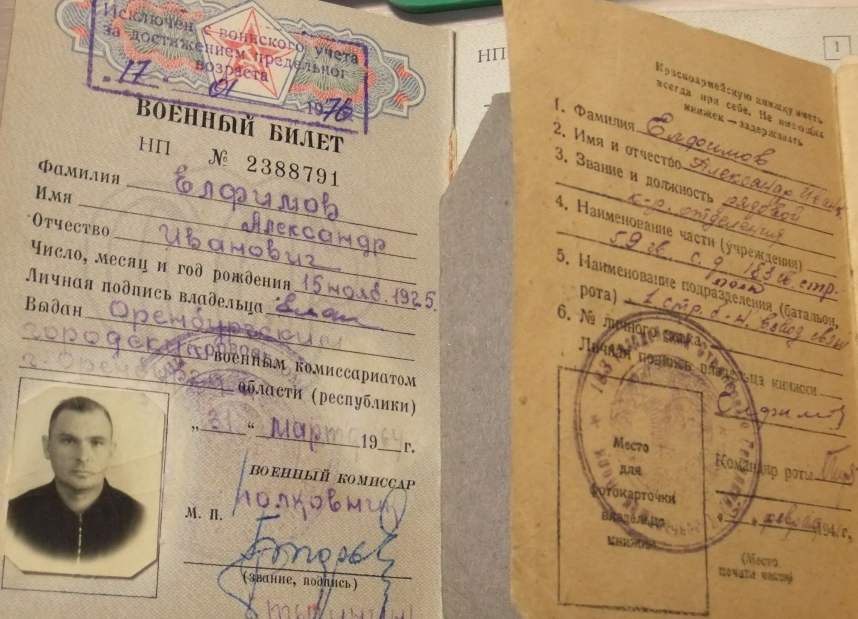 Исключен с воинского учета
за достижением предельног
возраста
„17“ 01 1976
ВОЕННЫЙ БИЛЕТ
НП № 2388791
Фамилия Елфимов
Имя Александр
Отчество Иванович
Число, месяц и год рождения 15 нояб. 1925.
Личная подпись владельца
Выдан Оренбургским
городским военным комиссариатом
г. Оренбург области (республики)
„31“ марта 1964 г.
ВОЕННЫЙ КОМИССАР
полковник
М. П.
(звание, подпись)
НП
1
Красноармейскую книжку иметь
всегда при себе. Не имеющих
книжек — задерживать
1. Фамилия Елфимов
2. Имя и отчество Александр
3. Звание и должность рядовой
к-р. отделения
4. Наименование части (учреждения)
59 гв. с. д. 183 гв. стр.
полк
5. Наименование подразделения (батальон,
рота) 1 стр. б-н. взвод связи
6. № личного знака
Личная подпись владельца книжки
Елфимов
Место
для
фотокарточки
владельца
книжки
Командир роты
194 г.
(Место
печати части)